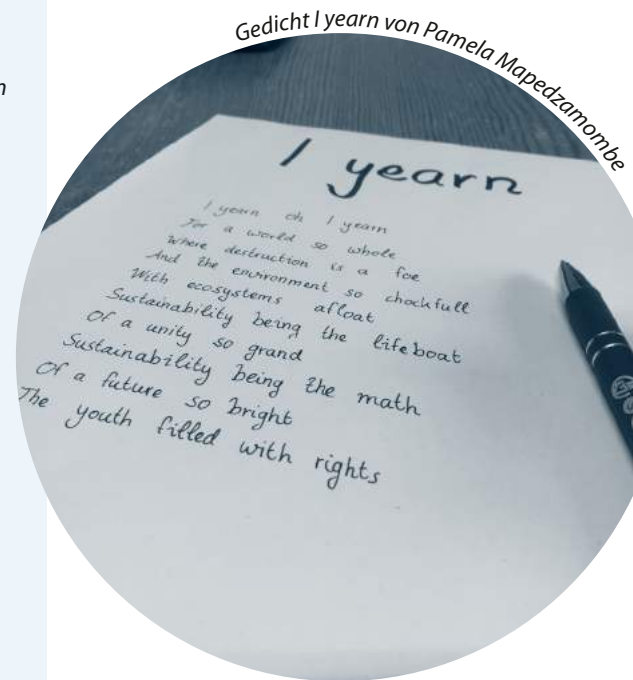 Gedicht I yearn von Pamela Mapedzamombe
n
I yearn
I yearn oh I yearn
For a world so whole
Where destruction is a foe
And the environment so chockfull
With ecosystems afloat
Sustainability being the lifeboat
Of a unity so grand
Sustainability being the math
Of a future so bright
The youth filled with rights